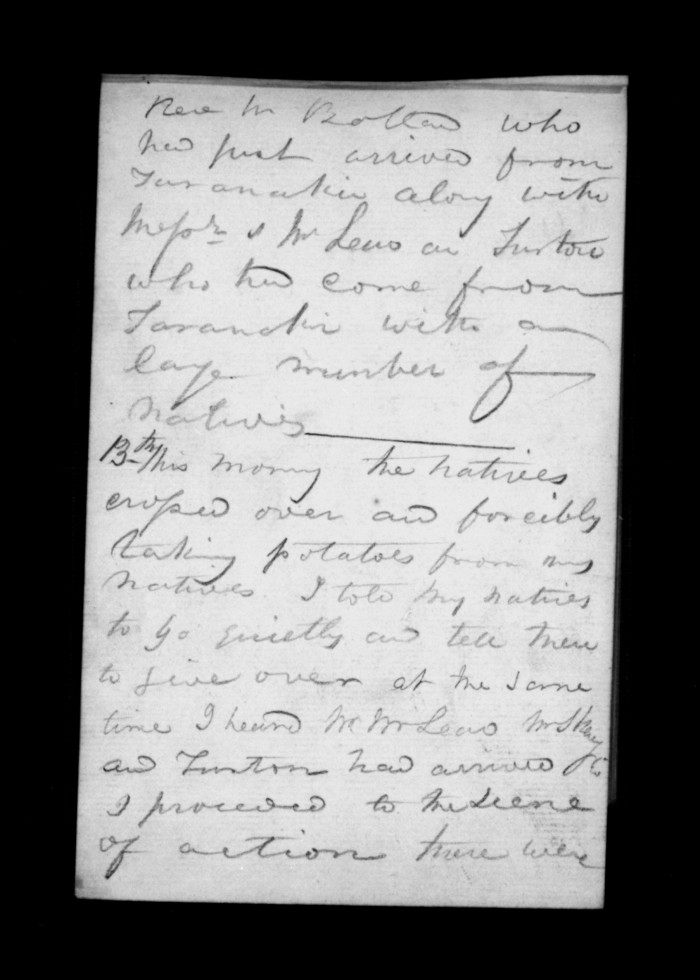 Revd Mr Bolland who
had just arrived from
Taranakie along with
Messrs McLean and Turton
who had come from
Taranakie with a
large number of
natives
13th this morning the natives
crossed over and forcibly
taking potatoes from my
natives I told my natives
to go quietly and tell them
to give over at the same
time I heard Mr McLean Mr
and Turton had arrived
I proceeded to the scene
of action there were